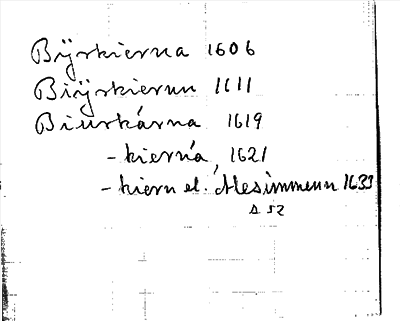 Bÿrkierna 1606
Biÿrkierun 1611
Biurkárna 1619
- kierna, 1621
- kiern el. Mesimmenn 1633
s 52